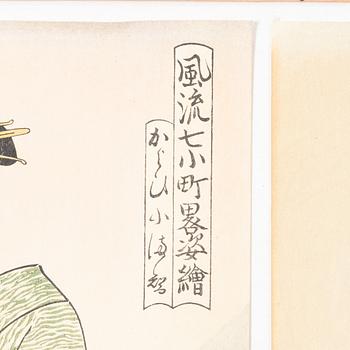 風流七小町畧姿繪
かよひ小満智